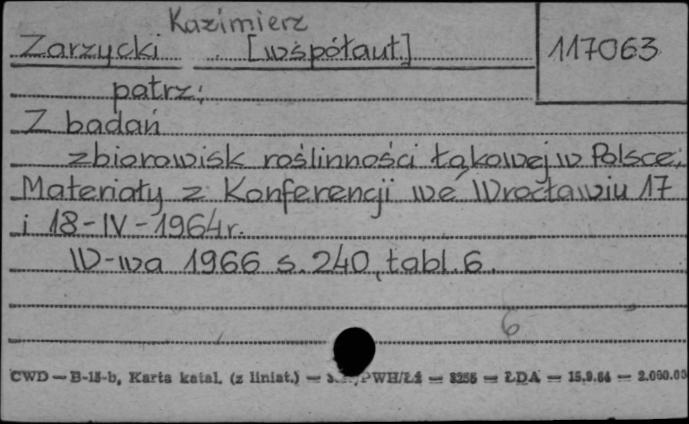 Kazimierz
Zarzycki [współaut.] 117063
patrz:
Z badań
zbiorowisk roślinności łąkowej w Polsce.
Materiały z Konferencji we Wrocławiu 17
i 18-IV-1964r.
W-wa 1966 s.240, tabl.6.
6
CWD — B-15-b, Karta katal. (z liniat.) — PWH/Łź — 3255 — ŁDA — 15.9.64 — 2.000.00